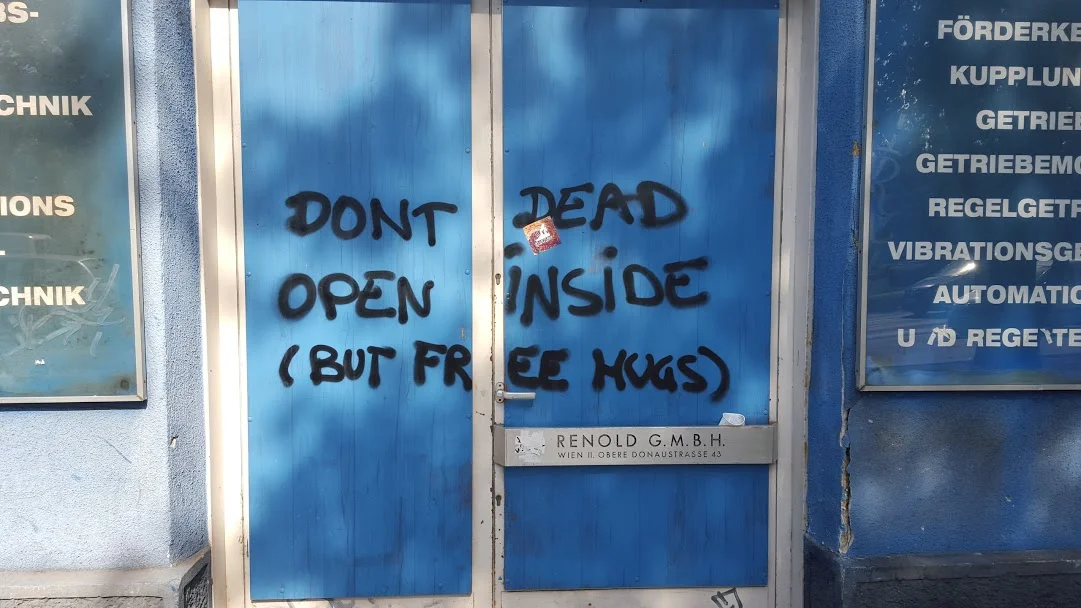 BS-
CHNIK
IONS
CHNIK
DONT DEAD
OPEN INSIDE
(BUT FREE HUGS)
RENOLD G.M.B.H.
WIEN II. OBERE DONAUSTRASSE 43
FÖRDERKE
KUPPLUN
GETRIEB
GETRIEBEMO
REGELGETR
VIBRATIONSGE
AUTOMATIO
U D REGE TE